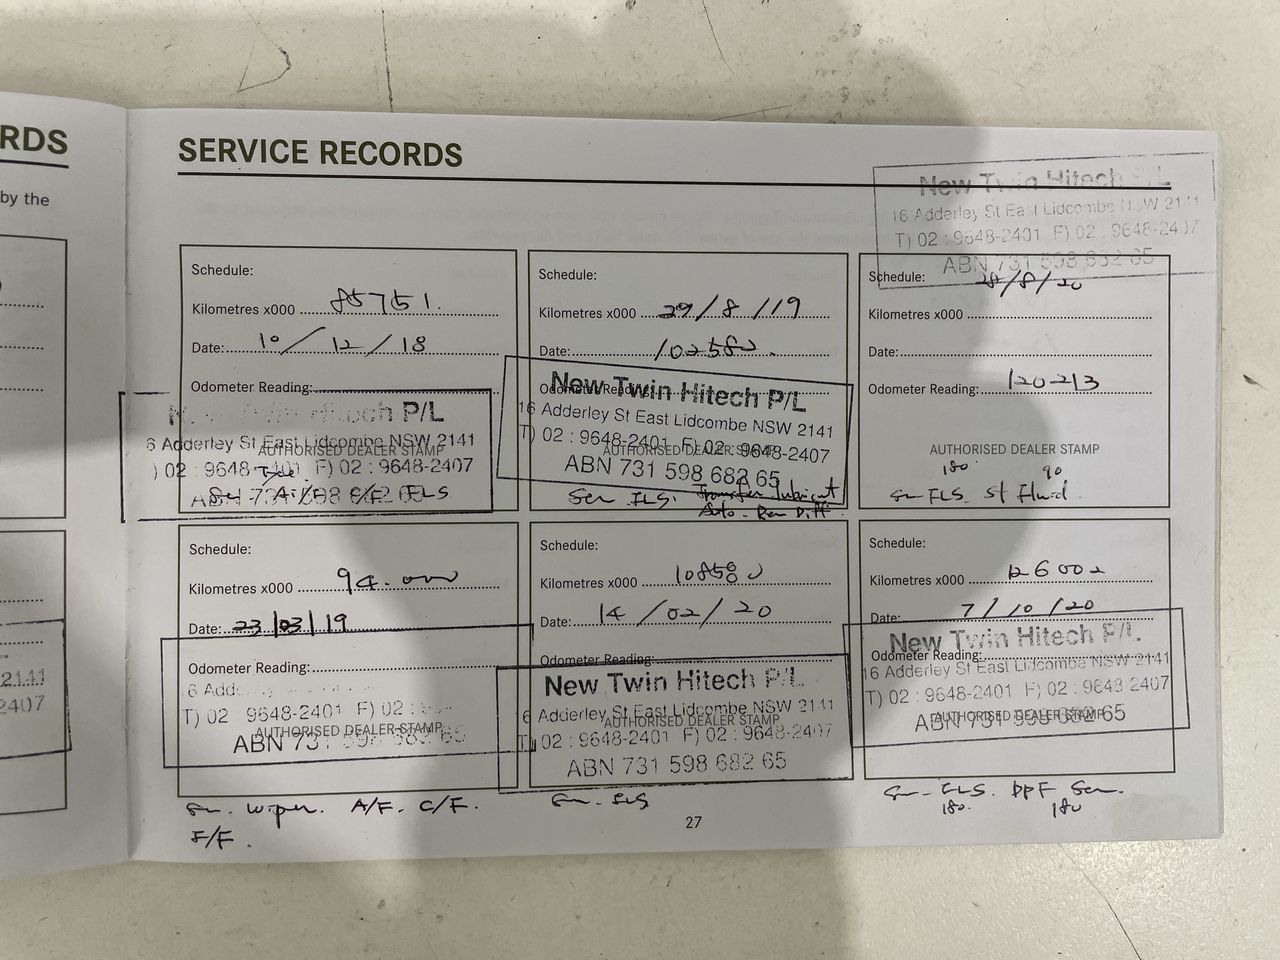 RDS
by the
2141
2407
SERVICE RECORDS
New Twin Hitech P/L
16 Adderley St East Lidcombe NSW 2141
T) 02 : 9648-2401 F) 02 : 9648-2407
ABN 731 598 682 65
Schedule:
Kilometres x000 85751.
Date: 10/12/18
Odometer Reading:
Hitech P/L
6 Adderley St East Lidcombe NSW 2141
) 02 : 9648-2401 F) 02 : 9648-2407
AUTHORISED DEALER STAMP
Schedule:
Kilometres x000 29/8/19
Date: 102580.
Odometer Reading:
New Twin Hitech P/L
16 Adderley St East Lidcombe NSW 2141
T) 02 : 9648-2401 F) 02 : 9648-2407
AUTHORISED DEALER STAMP
ABN 731 598 682 65
Transfer lubricant
Auto - Rear Diff
Schedule: 28/8/20
Kilometres x000
Date:
Odometer Reading: 120213
AUTHORISED DEALER STAMP
180 90
St Fluid
Schedule:
Kilometres x000 94.000
Date: 23/03/19
Odometer Reading:
6 Adde
T) 02 9648-2401 F) 02 :
AUTHORISED DEALER STAMP
ABN 731 598 682 65
Wiper. A/F. C/F.
F/F.
Schedule:
Kilometres x000
Date: 14/02/20
Odometer Reading:
New Twin Hitech P/L
6 Adderley St East Lidcombe NSW 2141
AUTHORISED DEALER STAMP
T) 02 : 9648-2401 F) 02 : 9648-2407
ABN 731 598 682 65
Schedule:
Kilometres x000 126002
Date: 7/10/20
New Twin Hitech P/L
Odometer Reading:
16 Adderley St East Lidcombe NSW 2141
T) 02 : 9648-2401 F) 02 : 9648-2407
AUTHORISED DEALER STAMP
ABN 731 598 682 65
DPF
180. 180
27